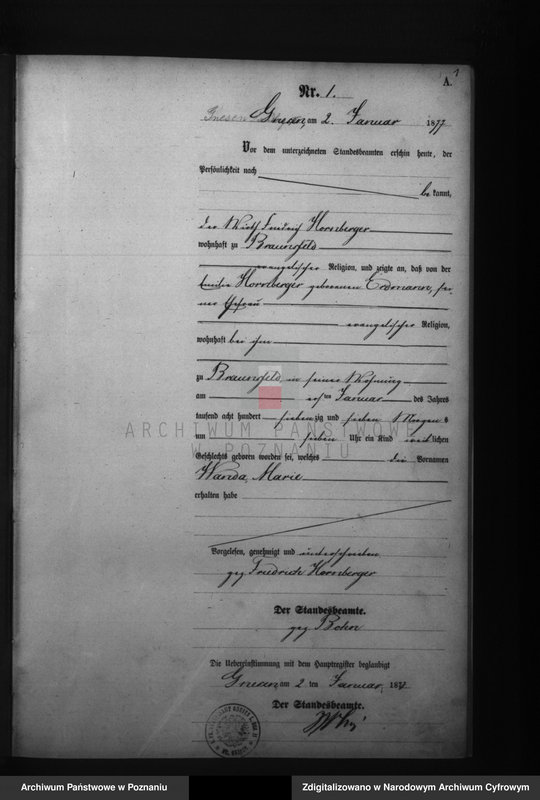 1
A.
Nr. 1.
Gnesen, am 2. Januar 1877
Vor dem unterzeichneten Standesbeamten erschien heute, der
Persönlichkeit nach
be kannt,
der Wirth Friedrich Hornberger
wohnhaft zu Braunsfeld
evangelischer Religion, und zeigte an, daß von der
Hornberger geborenen Erdmann, sei-
ner Ehefrau
evangelischer Religion,
wohnhaft bei ihm
zu Braunsfeld, in seiner Wohnung
am ersten Januar des Jahres
tausend acht hundert siebenzig und sieben Morgens
um sieben Uhr ein Kind weiblichen
Geschlechts geboren worden sei, welches die Vornamen
Wanda, Marie
erhalten habe
ARCHIWUM PAŃSTWOWE
W POZNANIU
Vorgelesen, genehmigt und unterschrieben
gez Friedrich Hornberger
Der Standesbeamte.
gez
Die Uebereinstimmung mit dem Hauptregister beglaubigt
Gnesen am 2 ten Januar, 1877
Der Standesbeamte.
Archiwum Państwowe w Poznaniu
Zdigitalizowano w Narodowym Archiwum Cyfrowym